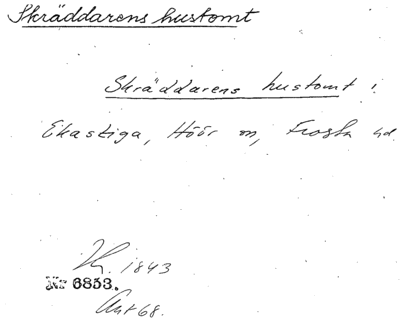 Skräddarens hustomt
Skräddarens hustomt i
Ekastiga, Höör sn, Frosta hd
1843
Nr 6853.
Ant 68.